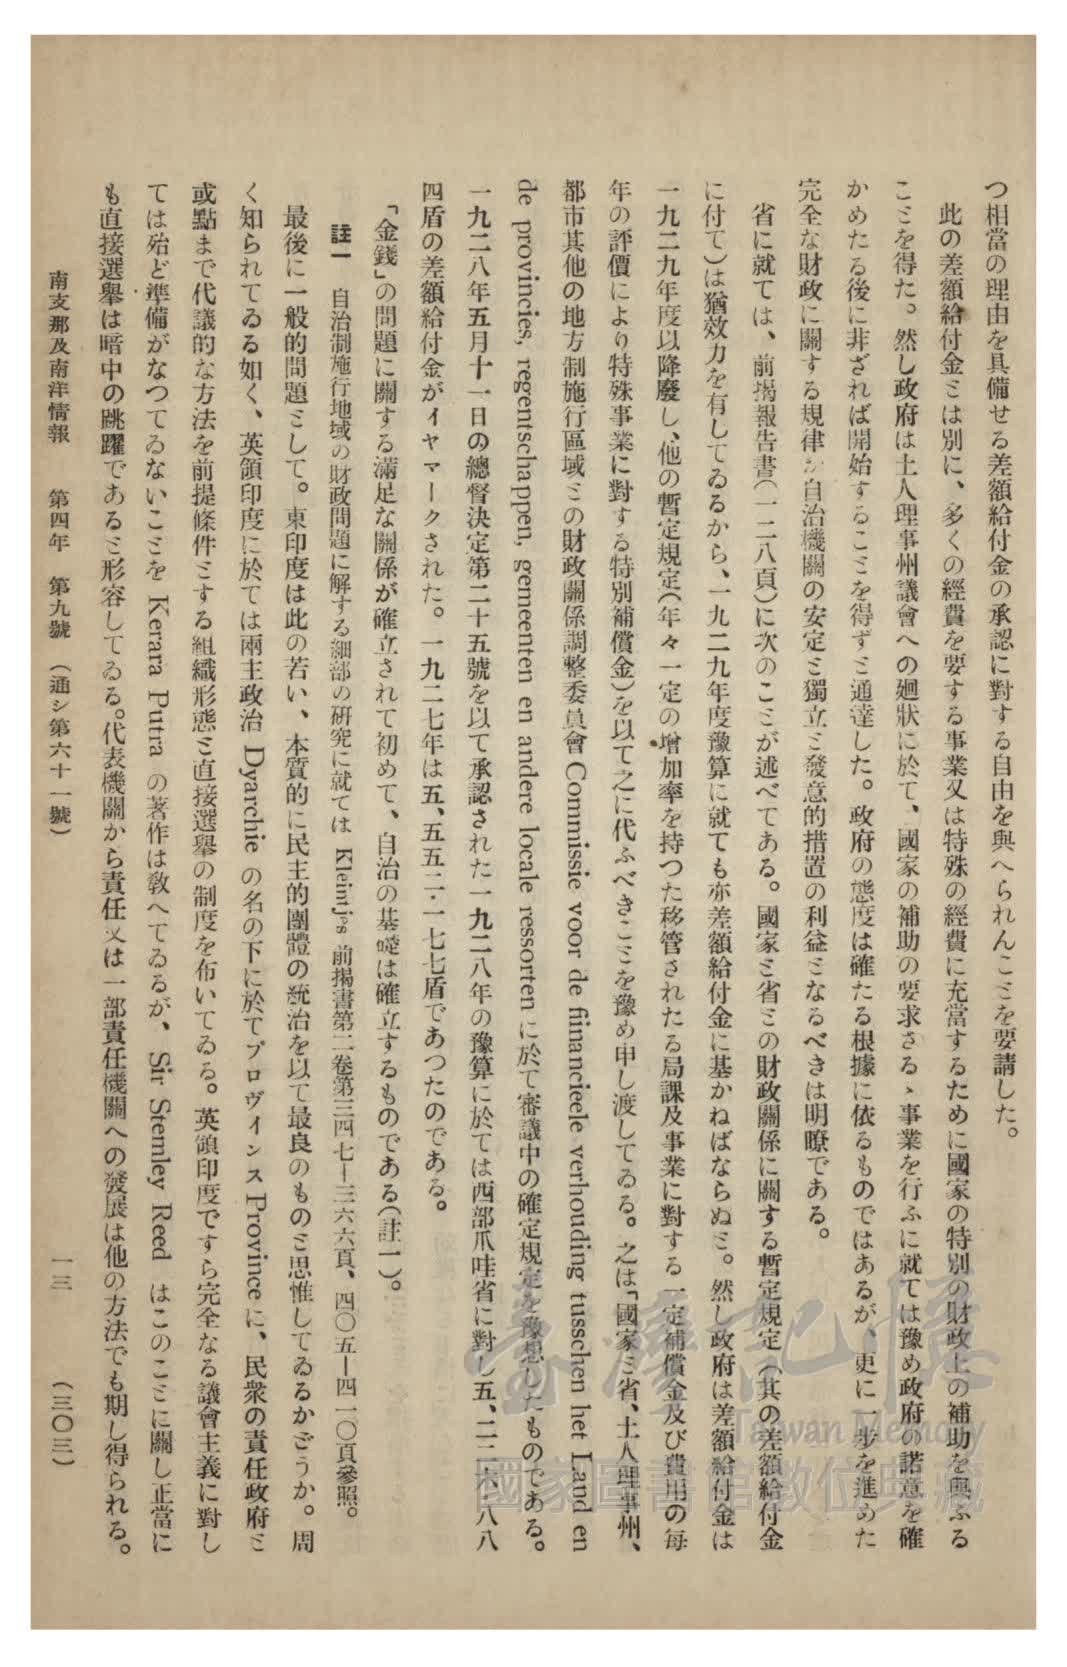 つ相當の理由を具備せる差額給付金の承認に對する自由を與へられんこミを要請した。
此の差額給付金ミは別に、多くの經費を要する事業又は特殊の經費に充當するために國家の特別の財政上の補助を與ふる
こミを得た。然し政府は土人理事州議會への廻狀に於て、國家の補助の要求さるゝ事業を行ふに就ては豫め政府の諾意を確
かめたる後に非ざれば開始するこミを得ずミ通達した。政府の態度は確たる根據に依るものではあるが、更に一步を進めた
完全な財政に關する規律が自治機關の安定ミ獨立ミ發意的措置の利益ミなるべきは明瞭である。
省に就ては、前揭報告書(一二八頁)に次のこミが述べてある。國家ミ省ミの財政關係に關する暫定規定(其の差額給付金
に付て)は猶效力を有してゐるから、一九二九年度豫算に就ても亦差額給付金に基かねばならぬミ。然し政府は差額給付金は
一九二九年度以降廢し、他の暫定規定(年々一定の增加率を持つた移管されたる局課及事業に對する一定補償金及び費用の每
年の評價により特殊事業に對する特別補償金)を以て之に代ふべきこミを豫め申し渡してゐる。之は「國家ミ省、土人理事州、
都市其他の地方制施行區域ミの財政關係調整委員會 Commissie voor de fiinancieele verhouding tusschen het Land en
de provincies, regentschappen, gemeenten en andere locale ressorten に於て審議中の確定規定を豫想したものである。
一九二八年五月十一日の總督決定第二十五號を以て承認された一九二八年の豫算に於ては西部爪哇省に對し五、二二六・八八
四盾の差額給付金がイヤマークされた。一九二七年は五、五五二・一七七盾であつたのである。
「金錢」の問題に關する滿足な關係が確立されて初めて、自治の基礎は確立するものである(註一)。
註一 自治制施行地域の財政問題に解する細部の硏究に就ては Kleintjes 前揭書第二卷第三四七—三六六頁、四〇五—四一〇頁參照。
最後に一般的問題ミして。東印度は此の若い、本質的に民主的團體の統治を以て最良のものミ思惟してゐるかごうか。周
く知られてゐる如く、英領印度に於ては兩主政治 Dyarchie の名の下に於てプロヴインス Province に、民衆の責任政府ミ
或點まで代議的な方法を前提條件ミする組織形態ミ直接選擧の制度を布いてゐる。英領印度ですら完全なる議會主義に對し
ては殆ど準備がなつてゐないこミを Kerara Putra の著作は敎へてゐるが、Sir Stemley Reed はこのこミに關し正當に
も直接選擧は暗中の跳躍であるミ形容してゐる。代表機關から責任又は一部責任機關への發展は他の方法でも期し得られる。
南支那及南洋情報 第四年 第九號 (通シ第六十一號) 一三 (三〇三)
臺灣記憶
Taiwan Memory
國家圖書館數位典藏